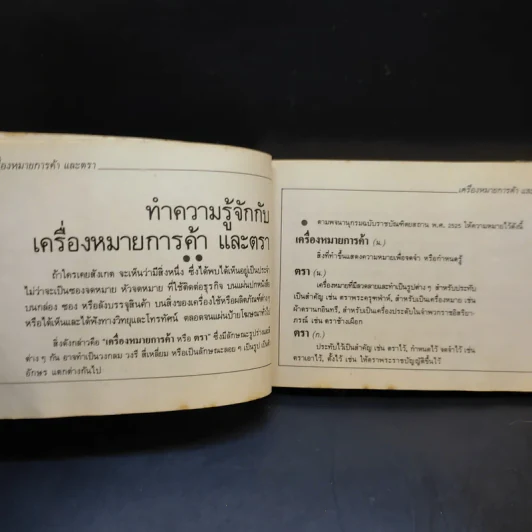 เครื่องหมายการค้า และตรา
ทำความรู้จักกับ
เครื่องหมายการค้า และตรา
ถ้าใครเคยสังเกต จะเห็นว่ามีสิ่งหนึ่ง ซึ่งได้พบได้เห็นอยู่เป็นประจำ
ไม่ว่าจะเป็นซองจดหมาย หัวจดหมาย ที่ใช้ติดต่อธุรกิจ บนแผ่นปกหนังสือ
บนกล่อง ซอง หรือลังบรรจุสินค้า บนสิ่งของเครื่องใช้หรือผลิตภัณฑ์ต่าง ๆ
หรือได้เห็นและได้ฟังทางวิทยุและโทรทัศน์ ตลอดจนแผ่นป้ายโฆษณาทั่วไป
สิ่งดังกล่าวคือ "เครื่องหมายการค้า หรือ ตรา" ซึ่งมีลักษณะรูปร่าง
ต่าง ๆ กัน อาจทำเป็นวงกลม วงรี สี่เหลี่ยม หรือเป็นลักษณะลอย ๆ เป็นรูป เป็นตัว
อักษร แตกต่างกันไป
เครื่องหมายการค้า
● ตามพจนานุกรมฉบับราชบัณฑิตยสถาน พ.ศ. 2525 ให้ความหมายไว้ดังนี้
เครื่องหมายการค้า (น.)
สิ่งที่ทำขึ้นแสดงความหมายเพื่อจดจำ หรือกำหนดรู้
ตรา (น.)
เครื่องหมายที่มีลวดลายและทำเป็นรูปต่าง ๆ สำหรับประทับ
เป็นสำคัญ เช่น ตราพระครุฑพ่าห์, สำหรับเป็นเครื่องหมาย เช่น
ผ้าตรานกอินทรี, สำหรับเป็นเครื่องประดับในจำพวกราชอิสริยา-
ภรณ์ เช่น ตราช้างเผือก
ตรา (ก.)
ประทับไว้เป็นสำคัญ เช่น ตราไว้, กำหนดไว้ จดจำไว้ เช่น
ตราเอาไว้, ตั้งไว้ เช่น ให้ตราพระราชบัญญัติขึ้นไว้